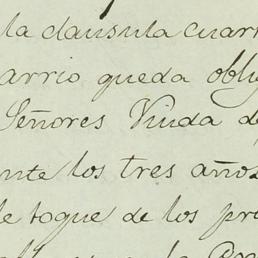 la clausula cuar
arrio queda obli
Señores Viuda d
nte los tres años
le toque de los pr